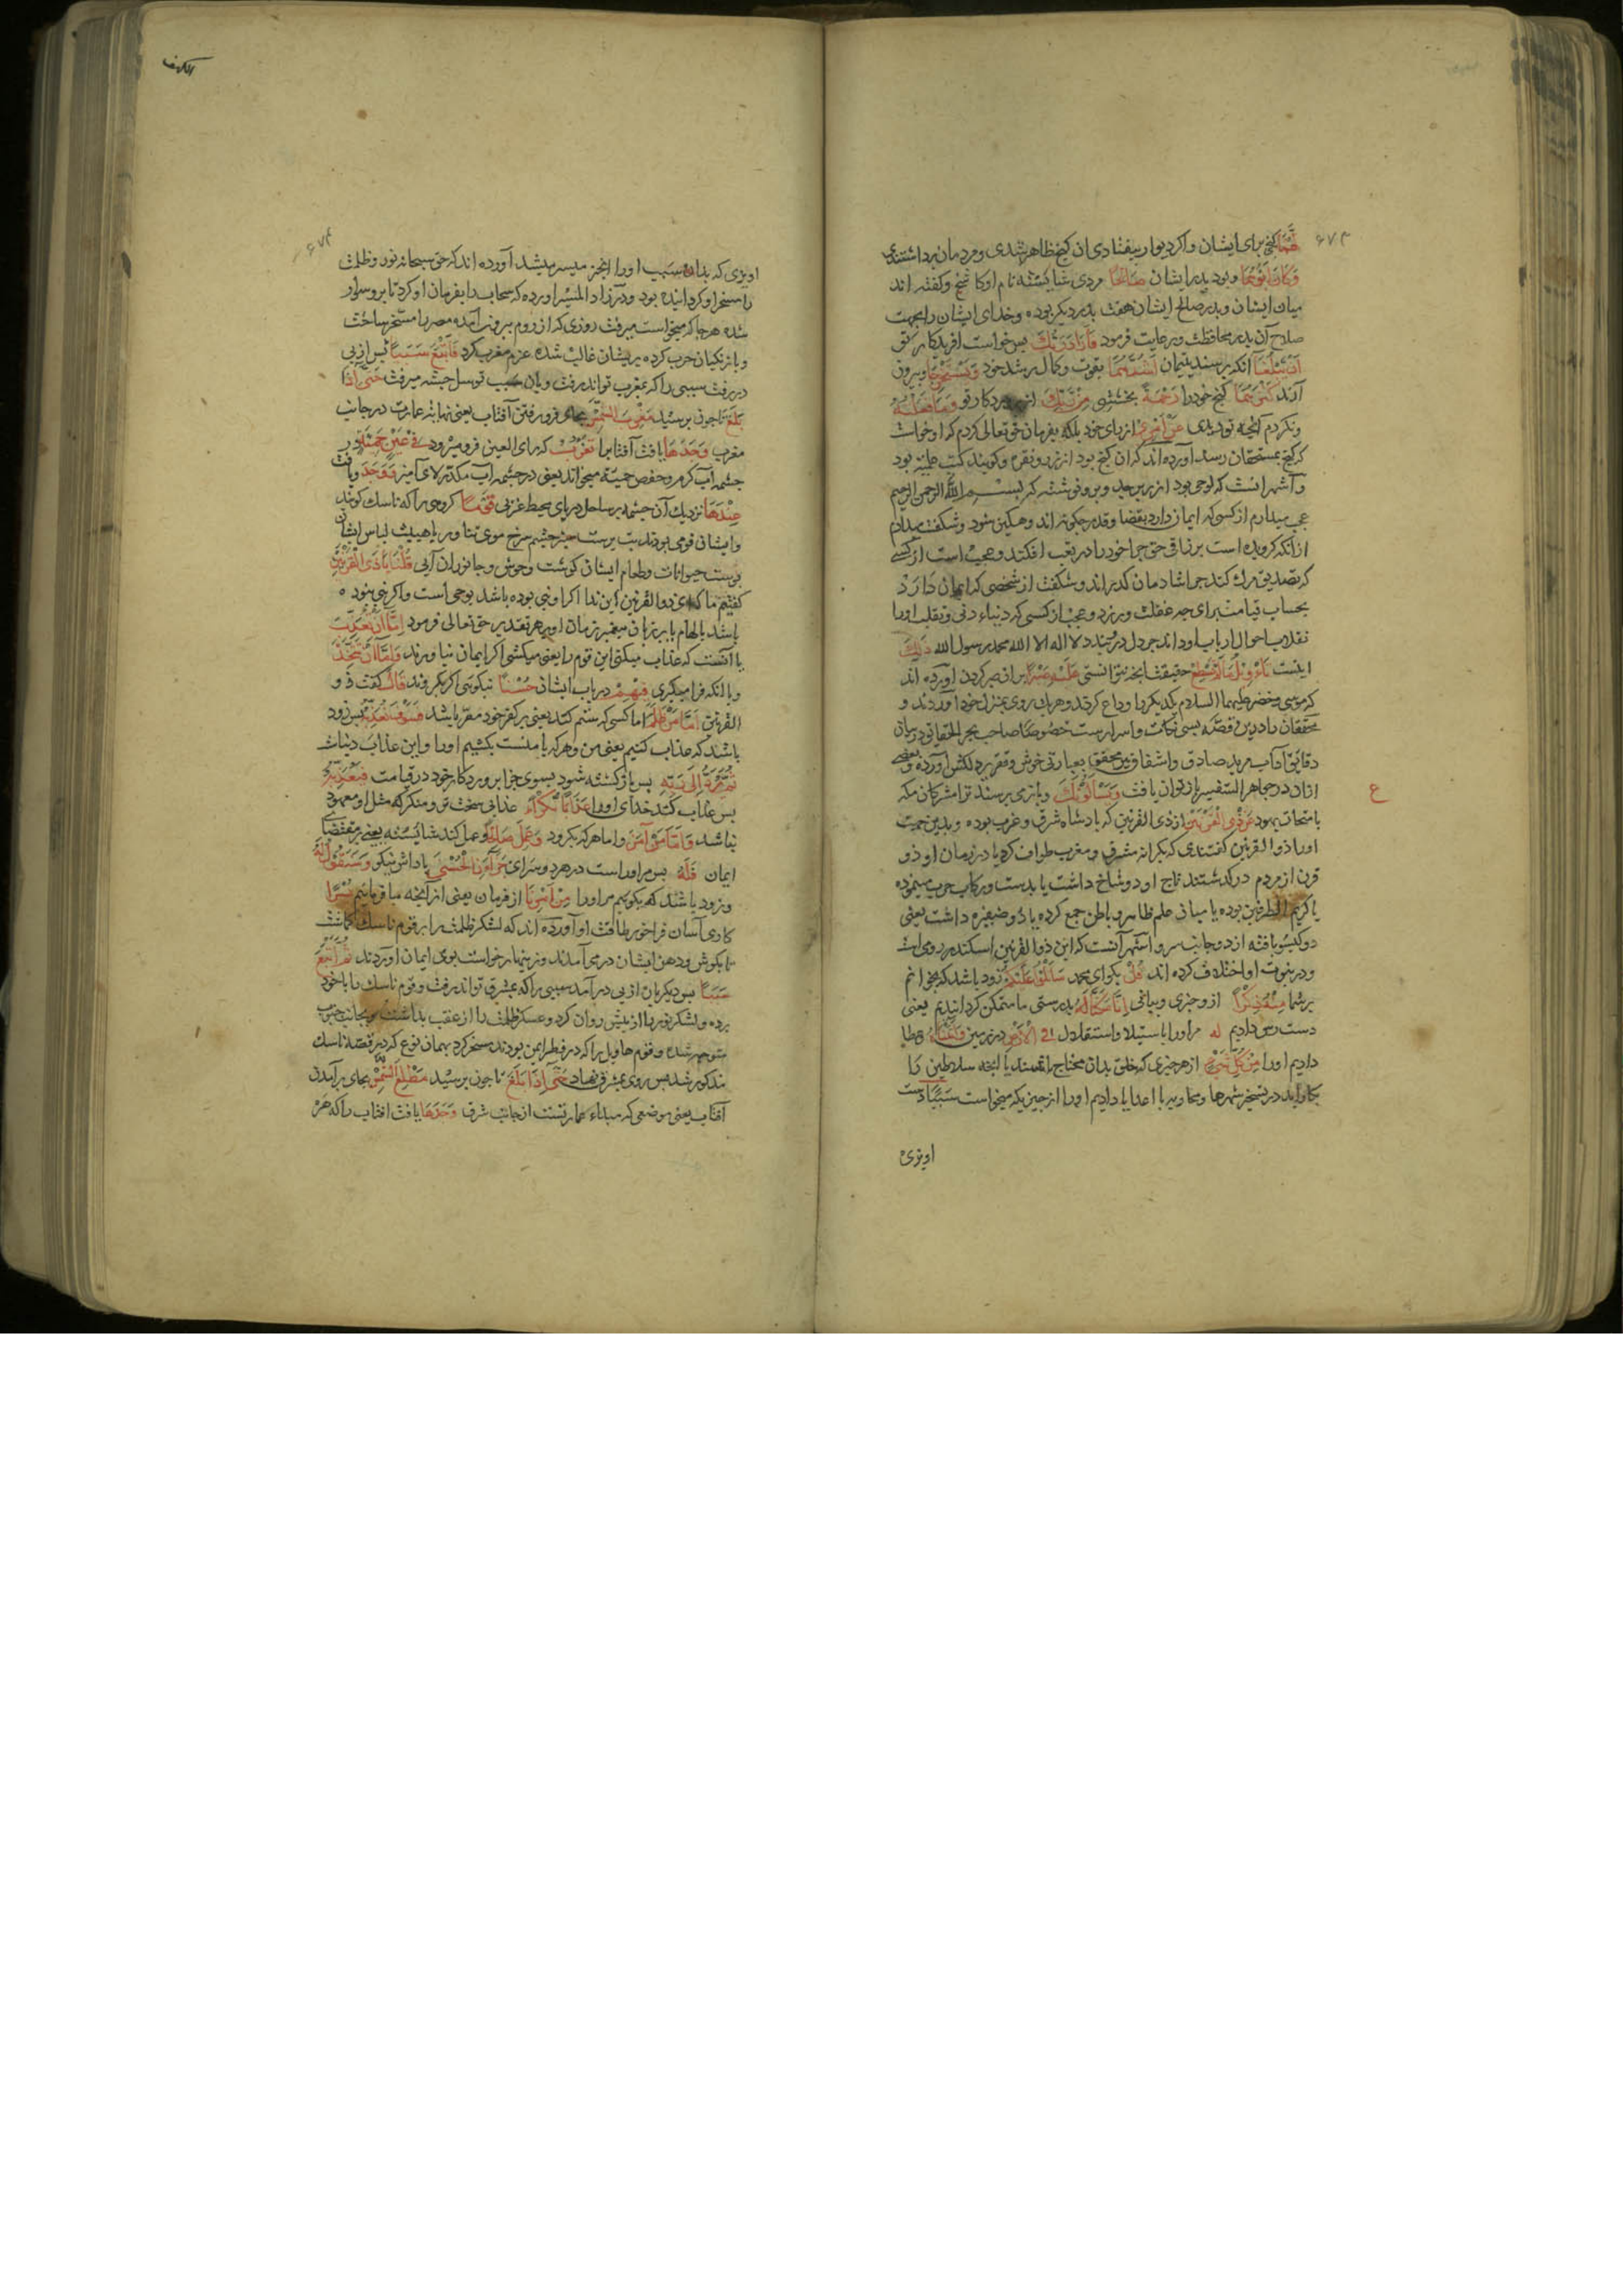 ۶۷۳
لَهُمَا گنجی برای ایشان واکر دیوار بیفتادی ان کنج ظاهر شدی ومردمان برداشتندی
وَكَانَ اَبُوهُمَا وبود پدر ایشان صَالِحًا مردی شایسته نام او کاشح وکفته اند
میان ایشان وپدر صالح ایشان هفت پدر دیکر بوده وخدای ایشان را بجهت
صلاح آن پدر محافظت ورعایت فرمود فَاَرَادَ رَبُّكَ پس خواست افریدکار تو
اَنْ یَبْلُغَا آنکه برسند یتیمان اَشُدَّهُمَا بقوت وکمال رشد خود وَیَسْتَخْرِجَا وبیرون
آرند كَنْزَهُمَا کنج خود را رَحْمَةً بخششی مِنْ رَبِّكَ از پروردکار تو وَمَا فَعَلْتُهُ
ونکردم آنچه تو دیدی عَنْ اَمْرِی از رای خود بلکه بفرمان حق تعالی کردم که او خواست
که کنج بمستحقان رسد آورده اند که ان کنج بود از زر ونقره وکویند کتب علمیه بود
و آشهر انست که لوحی بود از زبرجد وبرو نوشته که بسم الله الرحمن الرحیم
عجب میدارم از کسی که ایمان دارد بقضا وقدر چکونه اند وهکین شود وشکفت میدارم
از انکه کرویده است برزاقی حق چرا خود را در تعب افکند وعجب است از کسی
که تصدیق مرك کند چرا شادمان کذراند وشکفت از شخصی که ایمان دارد
بحساب قیامت برای چه غفلت ورزد وعجب از کسی که دنیاء دنی وتقلب اورا
نقلاب احوال ارباب او داند چرا دل درو بندد لا اله الا الله محمد رسول الله ذٰلِكَ
اینست تَأْوِیلُ مَا لَمْ تَسْطِعْ حقیقت آنچه نتوانستی عَلَیْهِ صَبْرًا بران صبر کردن آورده اند
که موسی وخضر علیهما السلام یکدیکر را وداع کردند وهریك روی بمنزل خود آوردند و
محققان را درین قصه بسی نکات واسرارست خصوصًا صاحب بحر الحقایق در بیان
دقایق آداب مرید صادق واشفاق پیر محقق بعبارتی خوش وفقره دلکش آورده وبعضی
ازان در جواهر التفسیر باز توان یافت وَیَسْأَلُونَكَ وبازمی پرسند ترا مشرکان مکه
بامتحان یهود عَنْ ذِی الْقَرْنَیْنِ از ذی القرنین که پادشاه شرق وغرب بوده وبدین جهت
اورا ذو القرنین کفتندی که بکرانه مشرق ومغرب طواف کرد یا در زمان او دو
قرن از مردم درکذشتند یا تاج او دو شاخ داشت یا بدست ورکاب حرب مینموده
یا کریم الطرفین بوده یا میان علم ظاهر وباطن جمع کرده یا دو ضفیره داشت یعنی
دو کیسو بافته از دو جانب سر واشهر آنست که این ذوالقرنین اسکندر رومی است
ودر نبوت او اختلاف کرده اند قُلْ بکو ای محمد سَاَتْلُو عَلَیْكُمْ زود باشد که بخوانم
برشما مِنْهُ ذِكْرًا ازو خبری وبیانی اِنَّا مَكَّنَّا لَهُ بدرستی ما متمکن کردانیدیم یعنی
دست رس دادیم له مر اورا باستیلا واستقلال فِی الْاَرْضِ در زمین وَآتَیْنَاهُ وعطا
دادیم اورا مِنْ كُلِّ شَیْءٍ از هر چیزی که خلق بدان محتاج باشند یا آنچه سلاطین را
بکار آید در تسخیر شهرها ومحاربه با اعدا یا دادیم اورا از چیزیکه میخواست سَبَبًا دست
اویزی
ع
الکهف
۶۷۴
اویزی که بدان سبب اورا انچیز میسر میشد آورده اند که حق سبحانه نور وظلمت
را مسخر او کردانیده بود ودر زاد المسیر اورده که سحاب را بفرمان او کرد تا برو سوار
شده هرجا که میخواست میرفت روزی که از روم بیرون آمده مصر را مسخر ساخت
وبا زنکیان حرب کرده بریشان غالب شده عزم مغرب کرد فَاَتْبَعَ سَبَبًا پس از پی
دررفت سببی را که بمغرب تواند رفت وبان سبب توسل جسته میرفت حَتّٰی اِذَا
بَلَغَ تا چون برسید مَغْرِبَ الشَّمْسِ بجای فرورفتن آفتاب یعنی نهایة عمارت در جانب
مغرب وَجَدَهَا یافت آفتابرا تَغْرُبُ که رای العین فرو میرود فِی عَیْنٍ حَمِئَةٍ در
چشمه آب کرم وحفص حمئة میخواند یعنی در چشمه آب مکدر لای آمیز وَوَجَدَ ویافت
عِنْدَهَا نزدیك آن چشمه بر ساحل دریای محیط غزبی قَوْمًا کروهی را که ناسك کویند
وایشان قومی بودند بت پرست سبز چشم سرخ موی تنآور باهیبت لباس ایشان
پوست حیوانات وطعام ایشان کوشت وحوش وجانوران آبی قُلْنَا یَا ذَا الْقَرْنَیْنِ
کفتیم ما که ای ذوالقرنین این ندا اکر او نبی بوده باشد بوحی است واکر نبی نبوده
باشد بالهام یا بر زبان پیغمبر زمان او بهر تقدیر حق تعالی فرمود اِمَّا اَنْ تُعَذِّبَ
یا آنست که عذاب میکنی این قوم را یعنی میکشی اکر ایمان نیاورند وَاِمَّا اَنْ تَتَّخِذَ
ویا انکه فرا میکیری فِیهِمْ درباب ایشان حُسْنًا نیکویی اکر بکروند قَالَ کفت ذو
القرنین اَمَّا مَنْ ظَلَمَ اما کسی که ستم کند یعنی بر کفر خود مصر باشد فَسَوْفَ نُعَذِّبُهُ پس زود
باشد که عذاب کنیم یعنی من وهر که با منست بکشیم اورا واین عذاب دنیاست
ثُمَّ یُرَدُّ اِلٰی رَبِّهِ پس باز کشته شود بسوی جزا پروردکار خود در قیامت فَیُعَذِّبُهُ
پس عذاب کند خدای اورا عَذَابًا نُكْرًا عذابی سخت تر ومنکر که مثل او معهود
نباشد وَاَمَّا مَنْ آمَنَ واما هر که بکرود وَعَمِلَ صَالِحًا وعمل کند شایسته یعنی بمقتضای
ایمان فَلَهُ پس مر اوراست در هر دو سرای جَزَآءً الْحُسْنٰی پاداش نیکو وَسَنَقُولُ لَهُ
وزود باشد که بکوییم مر اورا مِنْ اَمْرِنَا از فرمان یعنی از آنچه ما فرماییم یُسْرًا
کاری آسان فراخور طاقت او آورده اند که لشکر ظلمت را بر قوم ناسك کماشت
تا بکوش ودهن ایشان درمی آمدند وزینهار خواست بوی ایمان آوردند ثُمَّ اَتْبَعَ
سَبَبًا پس دیکربار از پی درآمد سببی را که بمشرق تواند رفت وقوم ناسك را با خود
برده ولشکر نور را از پیش روان کرد وعسکر ظلمت را از عقب بداشت وبجانب جنوب
متوجه شده وقوم هاویل را که در قطر ایمن بودند مسخر کرد بهمان نوع که در قصه ناسك
مذکور شد پس روی بمشرق نهاد حَتّٰی اِذَا بَلَغَ تا چون برسید مَطْلِعَ الشَّمْسِ بجای برآمدن
آفتاب یعنی موضعی که مبداء عمارتست از جانب شرق وَجَدَهَا یافت افتاب را که هر